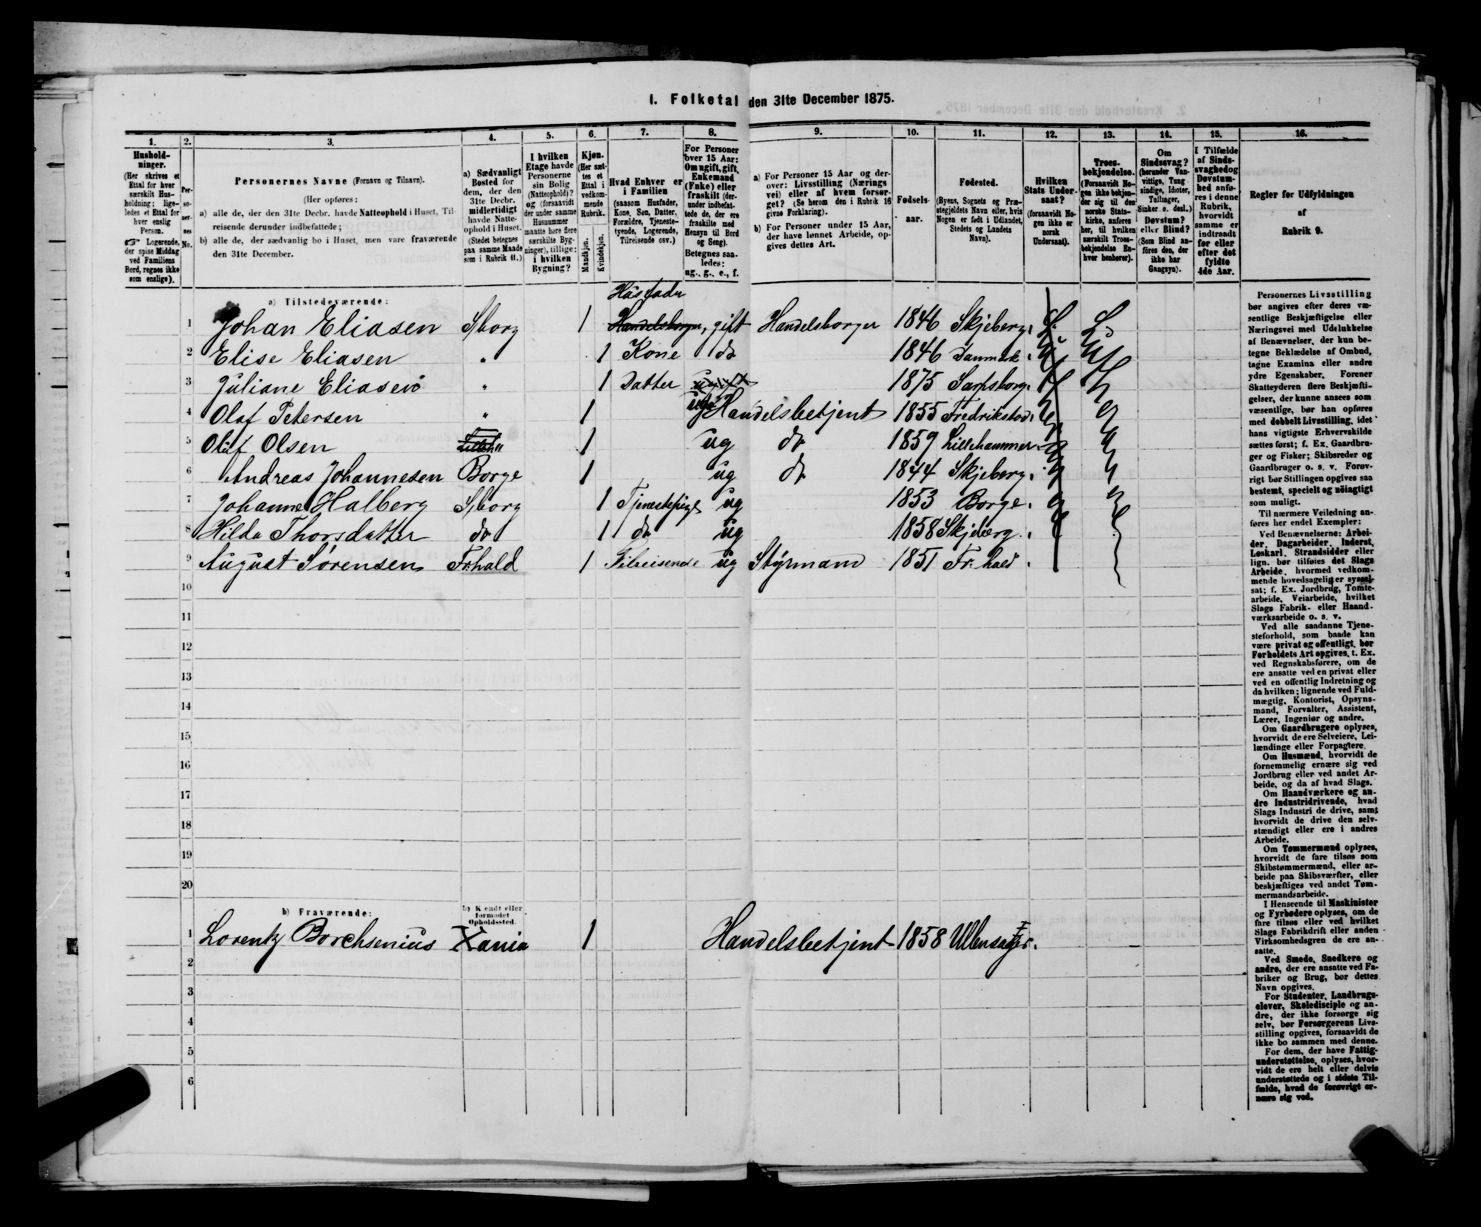 1. Folketal den 31te December 1875.
1. 2. 3. 4. 5. 6. 7. 8. 9. 10. 11. 12. 13. 14. 15. 16.
Hushold-
ninger.
(Her skrives et
Ettal for hver
særskilt Hus-
holdning; lige-
ledes et Ettal for
hver enslig
Person.
☞ Logerende,
der spise Middag
ved Familiens
Bord, regnes ikke
som enslige).
Per-
so-
ner-
nes
No.
Personernes Navne (Fornavn og Tilnavn).
(Her opføres:
a) alle de, der den 31te Decbr. havde Natteophold i Huset, Til-
reisende derunder indbefattede;
b) alle de, der sædvanlig bo i Huset, men vare fraværende
den 31te December.
a) Sædvanligt
Bosted for
dem, der den
31te Decbr.
midlertidigt
havde Natte-
ophold i Huset.
(Stedet betegnes
paa samme Maade
som i Rubrik 11.)
I hvilken
Etage havde
Personerne
sin Bolig
(Natteophold)?
og (forsaavidt
der under samme
Husnummer
maatte høre flere
særskilte Byg-
ninger), tillige:
i hvilken
Bygning?
Kjøn.
(Her sæt-
tes et
Ettal i
vedkom-
mende
Rubrik.
Mandkjøn.
Kvindekjøn.
Hvad Enhver er
i Familien
(saasom Husfader,
Kone, Søn, Datter,
Forældre, Tjeneste-
tyende, Logerende,
Tilreisende osv.)
For Personer
over 15 Aar:
Om ugift, gift,
Enkemand
(Enke) eller
fraskilt (der-
under indbefat-
tede de, der ere
fraskilte med
Hensyn til Bord
og Seng).
Betegnes saa-
ledes:
ug., g., e., f.
a) For Personer 15 Aar og der-
over: Livsstilling (Nærings
vei) eller af hvem forsør-
get? (Se herom den i Rubrik 16
givne Forklaring).
b) For Personer under 15 Aar,
der have lønnet Arbeide, op-
gives dettes Art.
Fødsels-
aar.
Fødested.
(Byens, Sognets og Præ-
stegjeldets Navn eller, hvis
Nogen er født i Udlandet,
Stedets og Landets
Navn).
Hvilken
Stats Under-
saat?
(forsaavidt No-
gen ikke er
norsk
Undersaat).
Troes-
bekjendelse.
(Forsaavidt No-
gen ikke bekjen-
der sig til den
norske Stats-
kirke, anføres
her, til hvilken
særskilt Troes-
bekjendelse En-
hver henhører).
Om
Sindssvag?
(herunder Van-
vittige, Tung
sindige, Idioter,
Tullinger,
Sinker o. desl.)
Døvstum?
eller Blind?
(Som Blind an-
føres den, der
ikke har
Gangsyn).
I Tilfælde
af Sinds-
svaghed og
Døvstum-
hed anfø-
res i denne
Rubrik,
hvorvidt
samme er
indtraadt
før eller
efter det
fyldte
4de Aar.
Regler for Udfyldningen
af
Rubrik 9.
a) Tilstedeværende:
Husfader
1 Johan Eliasen Sborg 1 Handelsborger, gift Handelsborger 1846 Skjeberg.
2 Elise Eliasen " 1 Kone do 1846 Danmark
3 Juliane Eliasen " 1 Datter 1875 Sarpsborg.
4 Olaf Petersen " 1 ug Handelsbetjent 1855 Fredrikstad
5 Oluf Olsen 1 ug do 1859 Lillehammer
6 Andreas Johannesen Borge 1 ug do 1844 Skjeberg
7 Johanne Halberg Sborg 1 Tjenestepige ug 1853 Borge.
8 Hilda Thorsdatter do 1 do ug 1858 Skjeberg.
9 August Sørensen Fr.hald 1 Tilreisende ug Styrmand 1851 Fr. hald.
10
11
12
13
14
15
16
17
18
19
20
b) Fraværende:
b) Kjendt eller
formodet
Opholdssted.
1 Lorentz Borchsenius Xania 1 Handelsbetjent 1858 Ullensager.
2
3
4
5
6
Personernes Livsstilling
bør angives efter deres væ-
sentlige Beskjæftigelse eller
Næringsvei med Udelukkelse
af Benævnelser, der kun be-
tegne Beklædelse af Ombud,
tagne Examina eller andre
ydre Egenskaber. Forener
Skatteyderen flere Beskjæfti-
gelser, der kunne ansees som
væsentlige, bør han opføres
med dobbelt Livsstilling, idet
hans vigtigste Erhvervskilde
sættes først; f. Ex. Gaardbru-
ger og Fisker; Skibsreder og
Gaardbruger o. s. v. Forøv-
rigt bør Stillingen opgives saa
bestemt, specielt og nøiagtigt
som muligt.
Til nærmere Veiledning an-
føres her endel Exempler:
Ved Benævnelserne: Arbei-
der, Dagarbeider, Inderst,
Løskarl, Strandsidder eller
lign. bør tilføies det Slags
Arbeide, hvormed vedkom-
mende hovedsagelig er syssel-
sat; f. Ex. Jordbrug, Tomte-
arbeide, Veiarbeide, hvilket
Slags Fabrik- eller Haand-
værksarbeide o. s. v.
Ved alle saadanne Tjene-
steforhold, som baade kan
være privat og offentligt, bør
Forholdets Art opgives, t. Ex.
ved Regnskabsførere, om de
ere ansatte ved en privat eller
ved en offentlig Indretning og
da hvilken; lignende ved Fuld-
mægtig, Kontorist, Opsyns-
mand, Forvalter, Assistent,
Lærer, Ingeniør og andre.
Om Gaardbrugere oplyses,
hvorvidt de ere Selveiere, Lei-
lændinge eller Forpagtere.
Om Husmænd, hvorvidt de
fornemmelig ernære sig ved
Jordbrug eller ved andet Ar-
beide, og da af hvad Slags.
Om Haandværkere og an-
dre Industridrivende, hvad
Slags Industri de drive, samt
hvorvidt de drive den selv-
stændigt eller ere i andres
Arbeide.
Om Tømmermænd oplyses,
hvorvidt de fare tilsøs som
Skibstømmermænd, eller ar-
beide paa Skibsværfter, eller
beskjæftiges ved andet Tøm-
mermandsarbeide.
I Henseende til Maskinister
og Fyrbødere oplyses, om de
fare tilsøs eller ved hvilket
Slags Fabrikdrift eller anden
Virksomhedsgren de ere an-
satte.
Ved Smede, Snedkere og
andre, der ere ansatte ved Fa-
briker og Brug, bør dettes
Navn opgives.
For Studenter, Landbrugs-
elever, Skoledisciple og an-
dre, der ikke forsørge sig
selv, bør Forsørgerens Livs-
stilling opgives, forsaavidt de
ikke bo sammen med denne.
For dem, der have Fattig-
understøttelse, oplyses, hvor-
vidt de ere helt eller delvis
understøttede og i sidste Til-
fælde, hvad de forøvrigt er-
nære sig ved.